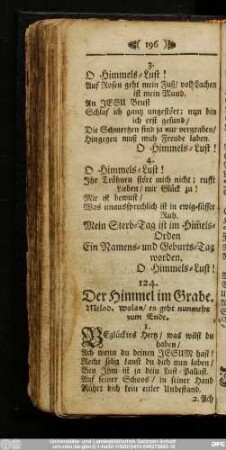 ( 196 )
3.
O Himmels-Lust!
Auf Rosen geht mein Fuß/ voll Lachen
ist mein Mund.
An JESU Brust
Schlaf ich gantz ungestört; nun bin
ich erst gesund/
Die Schmertzen sind ja nur vergraben/
Hingegen muß mich Freude laben.
O Himmels-Lust!
4.
O Himmels-Lust!
Ihr Tröhnen stört mich nicht: rufft
Lieben/ mir Glück zu!
Mir ist bewust/
Was unaussprechlich ist in ewig-süsser
Ruh.
Mein Sterb-Tag ist im Himels-
Orden
Ein Namens- und Geburts-Tag
worden.
O Himmels-Lust!
124.
Der Himmel im Grabe.
Melod. Wolan/ es geht nunmehr
zum Ende.
1.
BEglücktes Hertz/ was wilst du
haben/
Ach wenn du deinen JESUM hast/
Recht selig kanst du dich nun laben/
Bey Ihm ist ja dein Lust-Pallast.
Auf seiner Schoos/ in seiner Hand
Rührt dich kein eitler Unbestand.
2. Ach